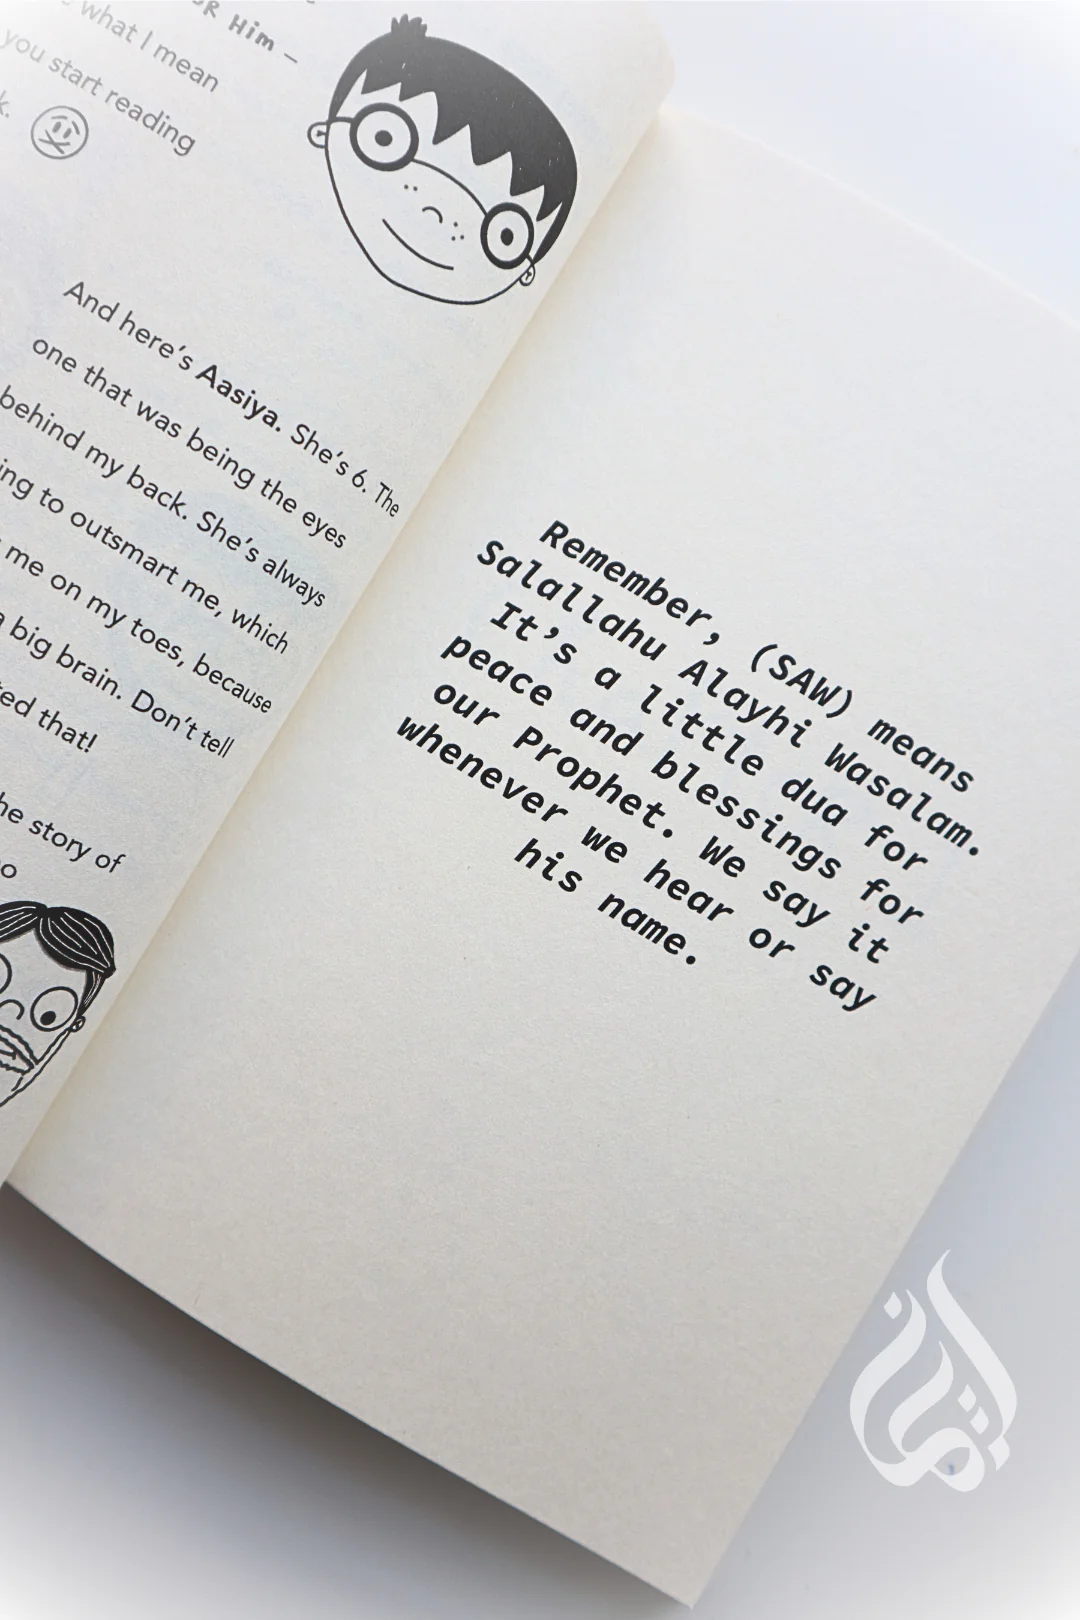 OR HIM –
what I mean
you start reading
k.
And here's Aasiya. She's 6. The
one that was being the eyes
behind my back. She's always
ing to outsmart me, which
me on my toes, because
a big brain. Don't tell
ted that!
he story of
oo
Remember, (SAW) means
Salallahu Alayhi Wasalam.
It's a little dua for
peace and blessings for
our Prophet. We say it
whenever we hear or say
his name.